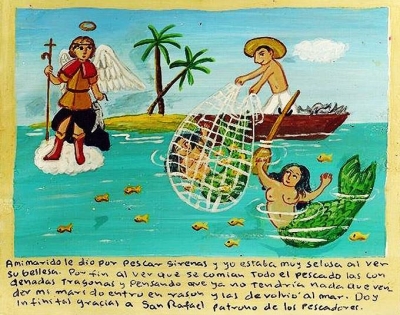 Ami marido le dio por Pescar sirenas y yo estaba muy selosa al ver
su bellesa. Por fin al ver que se comian Todo el pescado las con
denadas Tragonas y Pensando que ya no tendria nada que ven
der mi marido entro en rason y las devolvió al mar. Doy
Infinital gracial a San Rafael Patrono de los Pescadores.